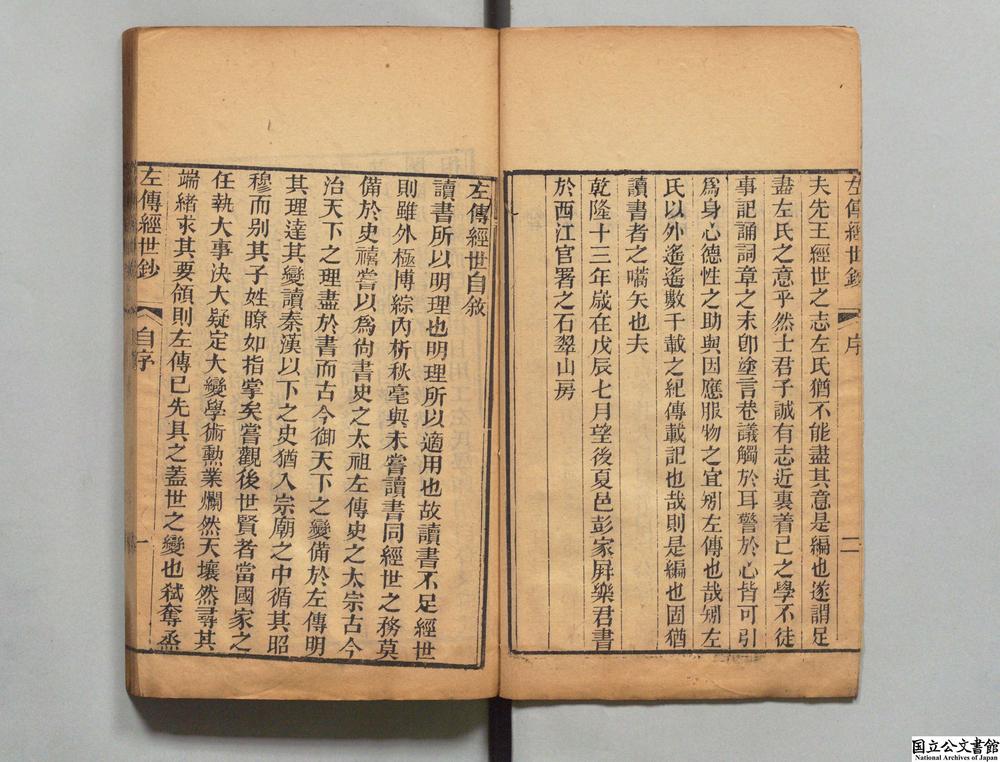 左傳經世鈔 序 二
夫先王經世之志左氏猶不能盡其意是編也遂謂足
盡左氏之意乎然士君子誠有志近裏着已之學不徒
事記誦詞章之末卽塗言巷議觸於耳警於心皆可引
爲身心德性之助與因應服物之宜矧左傳也哉矧左
氏以外遙遙數千載之紀傳載記也哉則是編也固猶
讀書者之嚆矢也夫
乾隆十三年歲在戊辰七月望後夏邑彭家屛樂君書
於西江官署之石翠山房
左傳經世自敘
讀書所以明理也明理所以適用也故讀書不足經世
則雖外極博綜內析秋毫與未嘗讀書同經世之務莫
備於史禧嘗以爲尙書史之太祖左傳史之太宗古今
治天下之理盡於書而古今御天下之變備於左傳明
其理達其變讀秦漢以下之史猶入宗廟之中循其昭
穆而别其子姓瞭如指掌矣嘗觀後世賢者當國家之
任執大事決大疑定大變學術勲業爛然天壤然尋其
端緒求其要領則左傳已先具之蓋世之變也弑奪烝
左傳經世鈔 自序 一
国立公文書館
National Archives of Japan